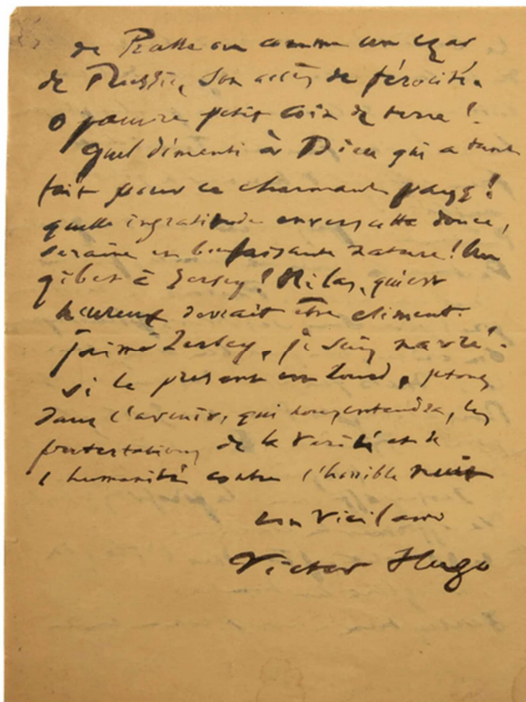 de Prusse ou comme un czar
de Russie, son accès de férocité.
O pauvre petit coin de terre !
quel démenti à Dieu qui a tant
fait pour ce charmant pays !
quelle ingratitude envers cette douce,
sereine et bienfaisante nature ! Un
gibet à Jersey ! Hélas, qui est
heureux devrait être clément.
j'aime Jersey, je suis navré.
si le présent est sourd, jetons
dans l'avenir, qui nous entendra, les
protestations de la vérité et de
l'humanité contre l'horrible nuit
un vieil ami
Victor Hugo